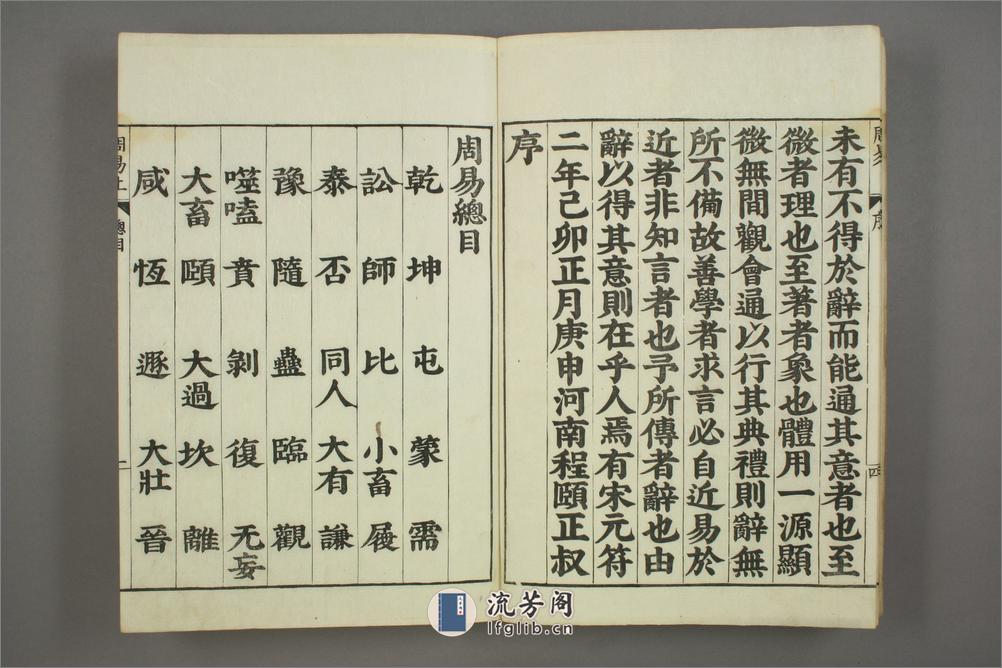 未有不得於辭而能通其意者也至
微者理也至著者象也體用一源顯
微無間觀會通以行其典禮則辭無
所不備故善學者求言必自近易於
近者非知言者也予所傳者辭也由
辭以得其意則在乎人焉有宋元符
二年己卯正月庚申河南程頤正叔
序
周易
序
四
周易總目
乾 坤 屯 蒙 需
訟 師 比 小畜 履
泰 否 同人 大有 謙
豫 隨 蠱 臨 觀
噬嗑 賁 剝 復 无妄
大畜 頤 大過 坎 離
咸 恆 遯 大壯 晉
周易上
總目
一
流芳阁
lfglib.cn